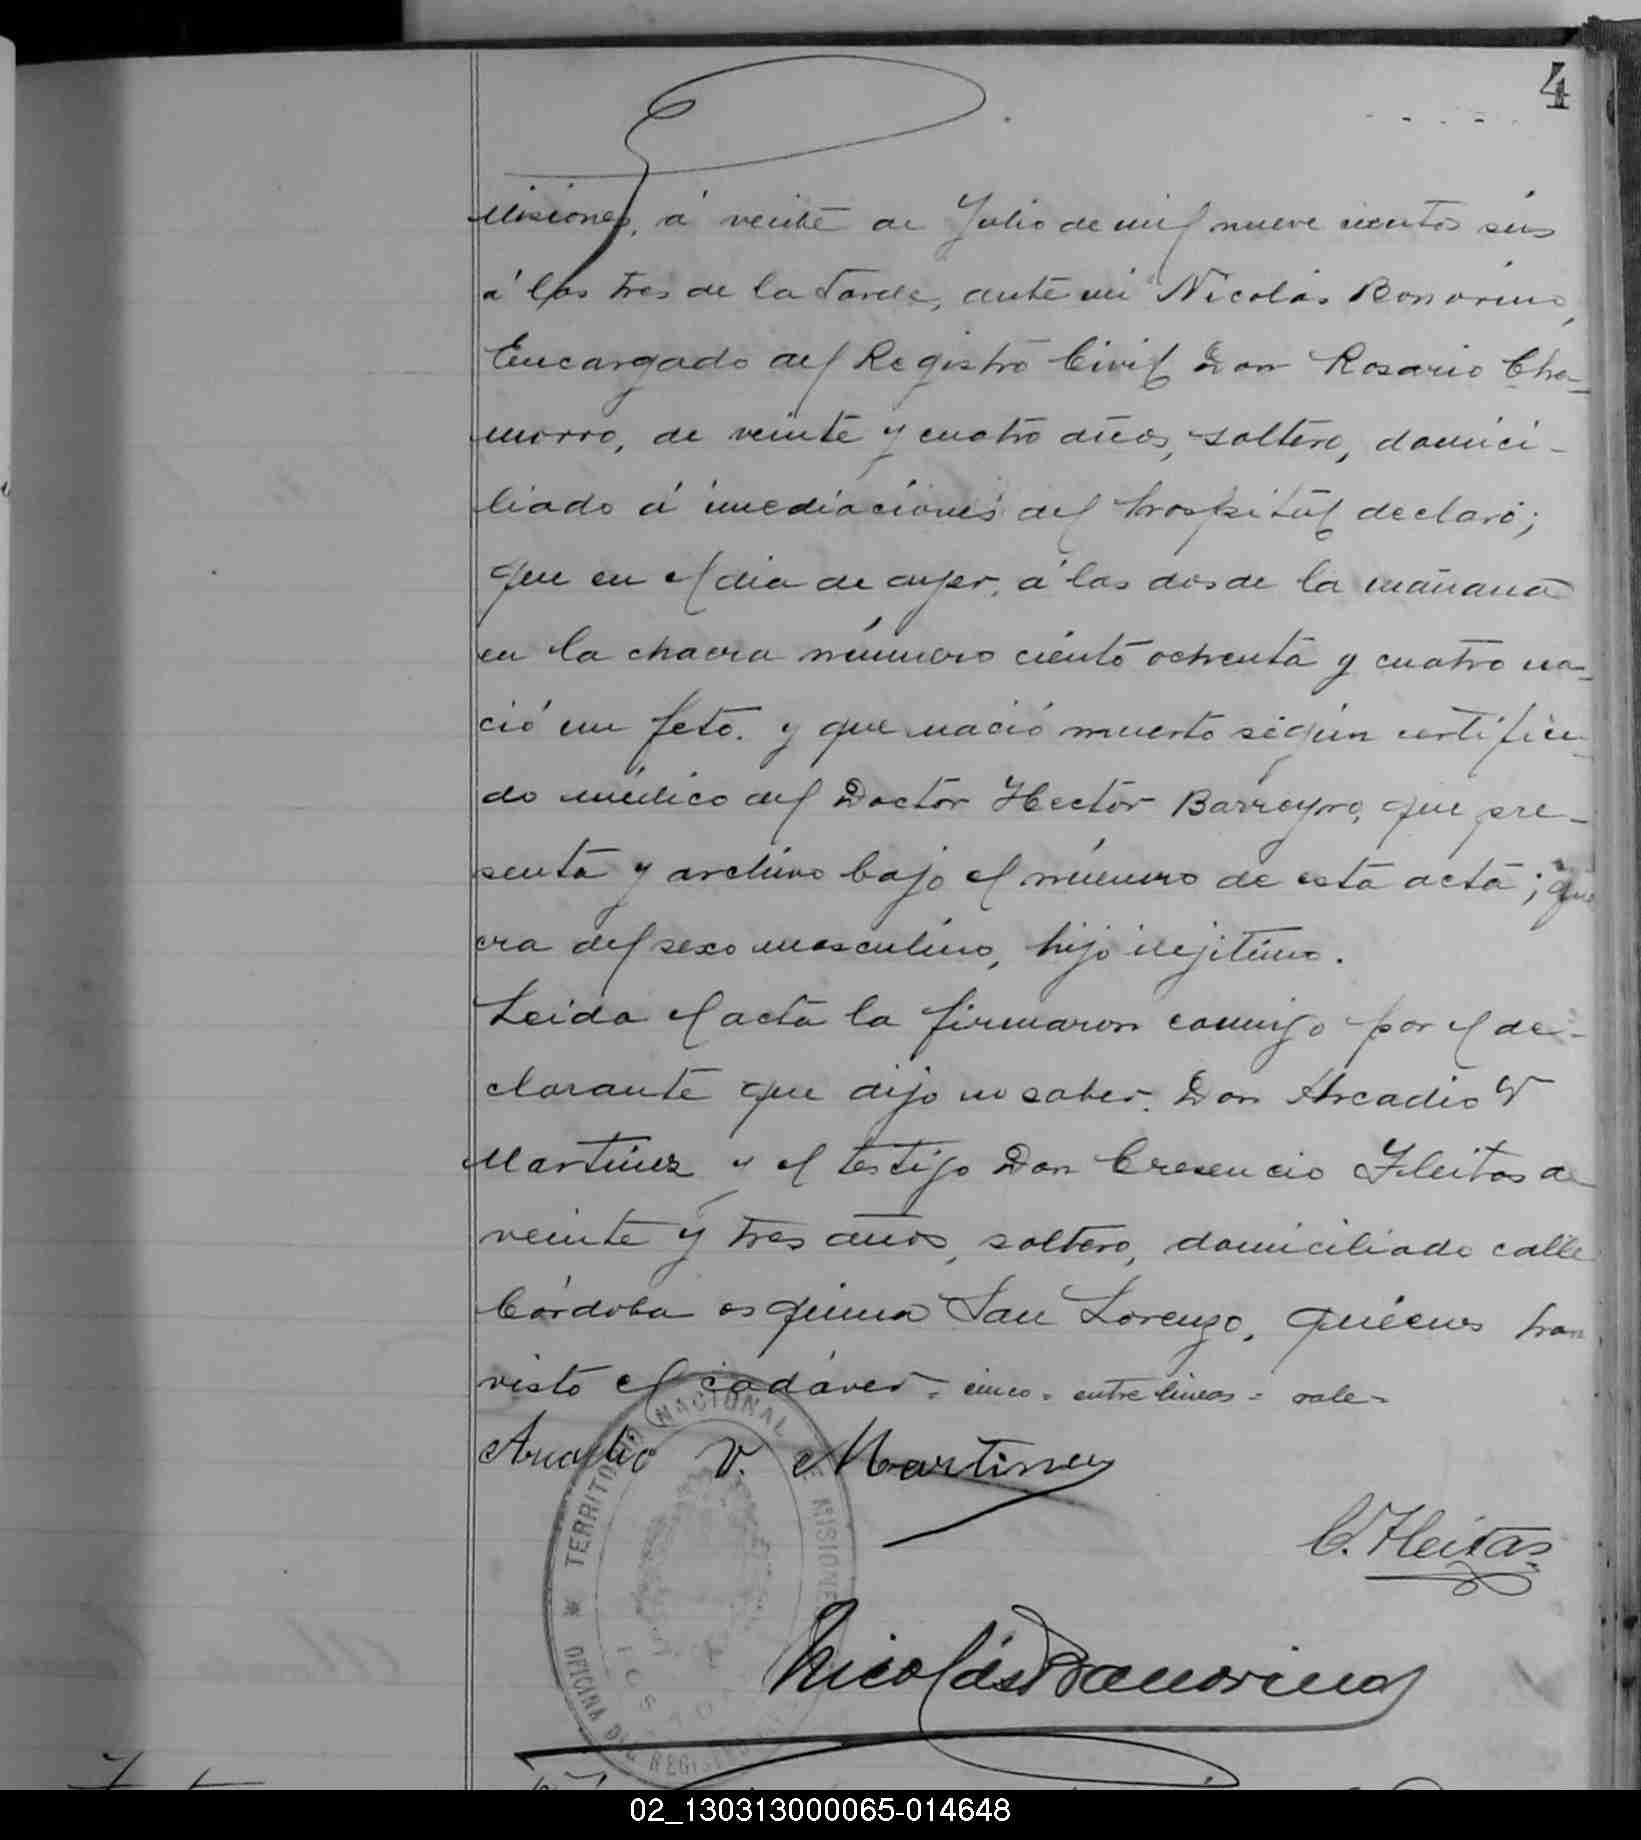 4
Misiones, á veinte de Julio de mil nueve cientos seis
á las tres de la tarde, ante mi Nicolás Bonorino,
Encargado del Registro Civil Don Rosario Cha-
morro, de veinte y cuatro años, soltero, domici-
liado á inmediaciones del hospital declaró;
que en el dia de ayer, á las dos de la mañana
en la chacra número ciento ochenta y cuatro na-
ció un feto. y que nació muerto según certifica-
do médico del Doctor Hector Barreyro, que pre-
senta y archivo bajo el número de esta acta; que
era del sexo masculino, hijo ilejitimo.
Leida el acta la firmaron comigo por el de-
clarante que dijo no saber. Don Arcadio V
Martinez y el testigo Don Cresencio Fleitas de
veinte y tres años, soltero, domiciliado calle
Córdoba esquina San Lorenzo, quiénes han
visto el cadáver = cinco = entre lineas = vale =
Arcadio V. Martinez
C. Fleitas
Nicolás Bonorino
TERRITORIO NACIONAL DE MISIONES
OFICINA DEL REGISTRO
POSADAS
02_130313000065-014648